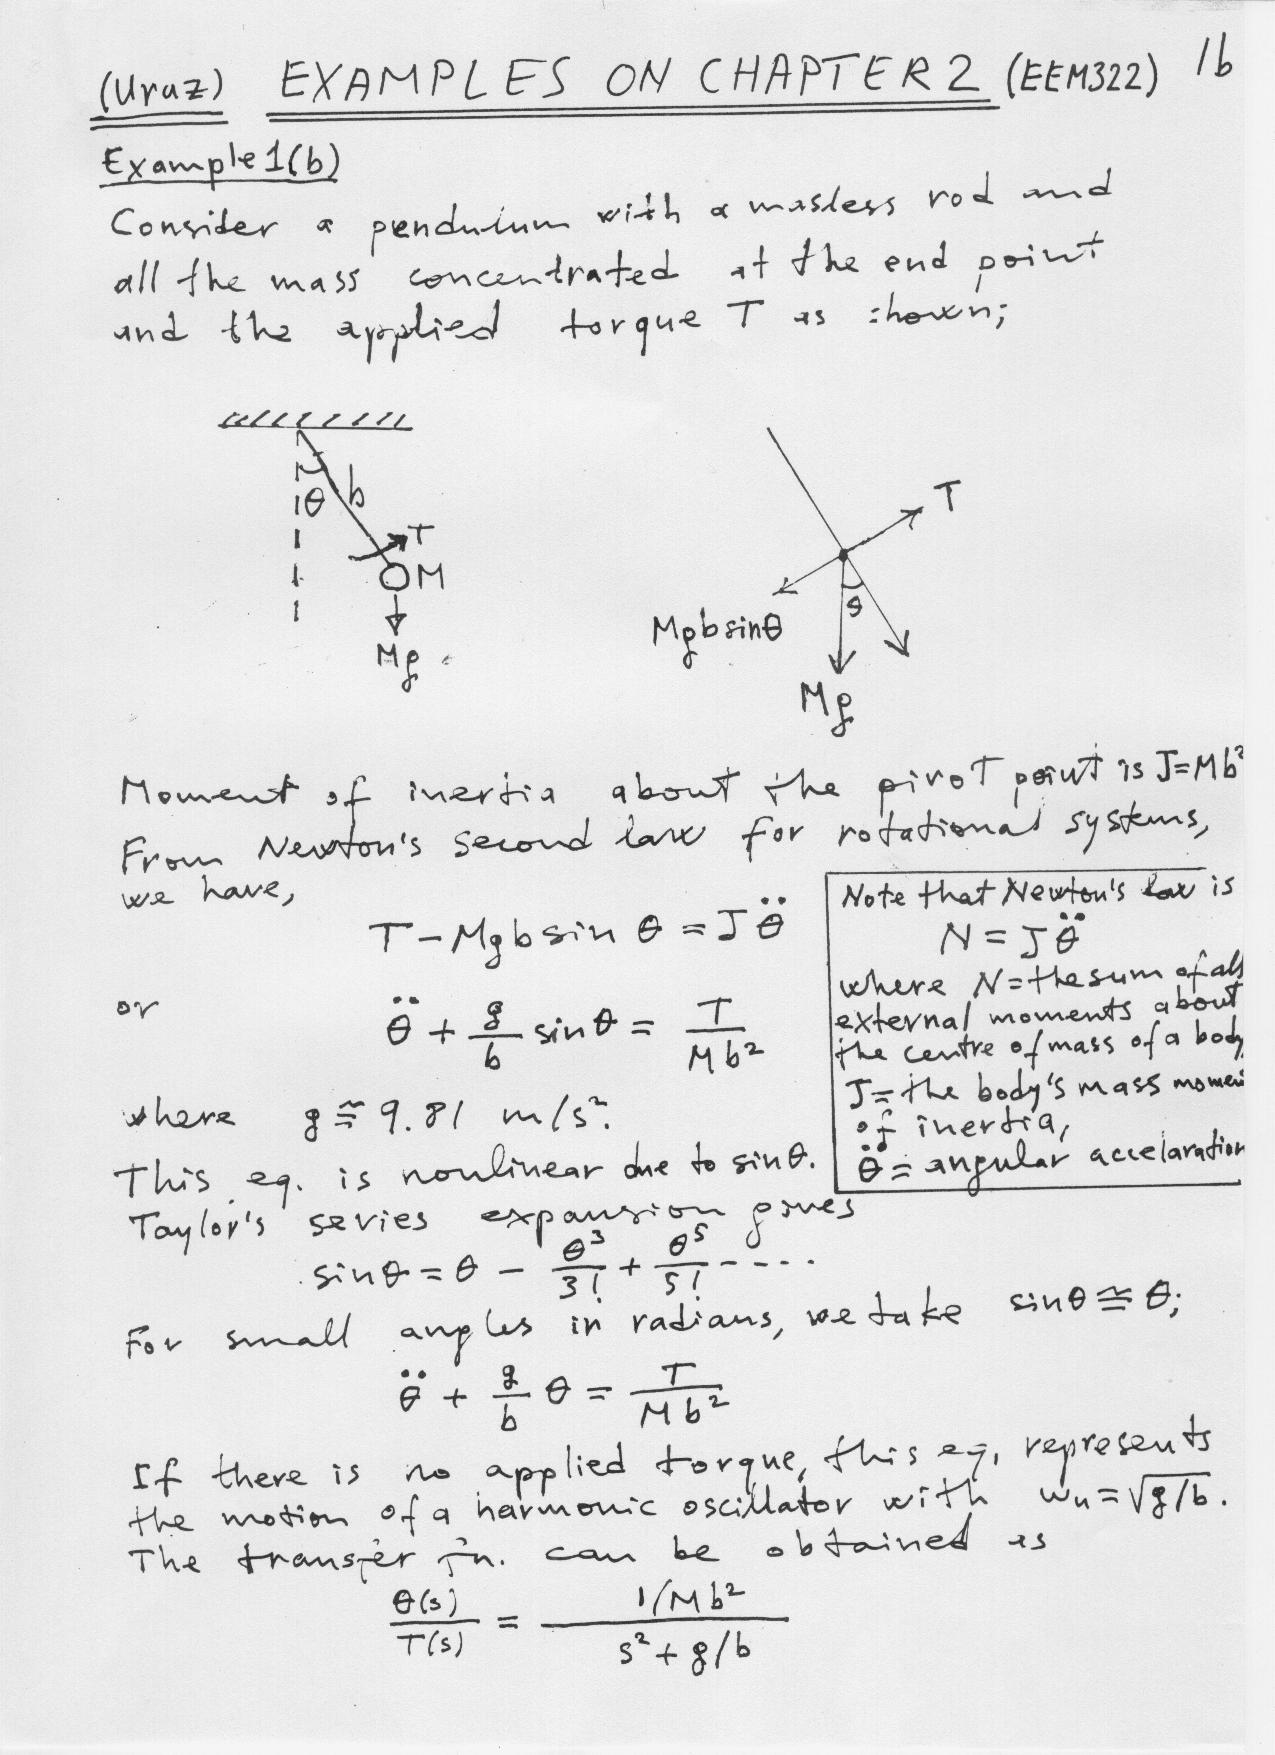 (Uraz) EXAMPLES ON CHAPTER 2 (EEM322) 1b
Example 1(b)
Consider a pendulum with a masless rod and
all the mass concentrated at the end point
and the applied torque T as shown;
θ b
T
M
Mg
T
Mgbsinθ
θ
Mg
Moment of inertia about the pivot point is J=Mb²
From Newton's second law for rotational systems,
we have,
T-Mgbsin θ = Jθ̈
or
θ̈ + g/b sinθ = T/Mb²
where g ≅ 9.81 m/s².
Note that Newton's law is
N = Jθ̈
where N=the sum of all
external moments about
the centre of mass of a body,
J=the body's mass momen
of inertia,
θ̈ = angular accelaration
This eq. is nonlinear due to sinθ.
Taylor's series expansion gives
sinθ = θ - θ³/3! + θ⁵/5! -----
For small angles in radians, we take sinθ ≅ θ;
θ̈ + g/b θ = T/Mb²
If there is no applied torque, this eq. represents
the motion of a harmonic oscillator with wn=√g/b.
The transfer fn. can be obtained as
θ(s)/T(s) = 1/Mb² / s²+g/b